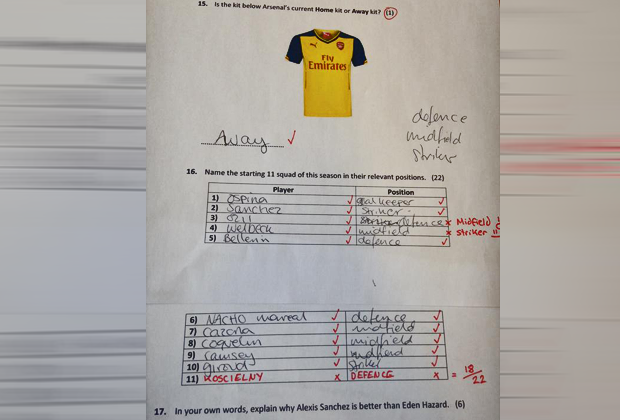 15. Is the kit below Arsenal's current Home kit or Away kit? (1)
Fly
Emirates
defence
midfield
striker
Away ✓
16. Name the starting 11 squad of this season in their relevant positions. (22)
Player Position
1) Ospina ✓ goalkeeper ✓
2) Sanchez ✓ striker ✓
3) Ozil ✓ defence x Midfield
4) Welbeck ✓ midfield x striker
5) Bellerin ✓ defence ✓
6) NACHO monreal ✓ defence ✓
7) Cazorla ✓ midfield ✓
8) Coquelin ✓ midfield ✓
9) ramsey ✓ midfield ✓
10) giroud ✓ striker ✓
11) KOSCIELNY x DEFENCE x = 18/22
17. In your own words, explain why Alexis Sanchez is better than Eden Hazard. (6)